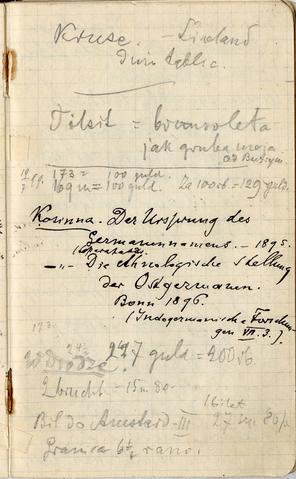 Kruse. – Livland
Tilsit = bransoleta
jak gruba moja
173 = 100 guld.
169 m = 100 guld. Za 100 rb. = 129 guld.
Kosinna. Der Ursprung des
Germannamens. – 1895.
– „ – Die ethnologische Stellung
der Ostgermanen.
Bonn 1896.
(Indogermanische Forschun
gen VII. 3.)
173
247 guld = 200 rb
15 m 80
16 bilet
Bil do Amsterd – III 27 m 80
Granica 6½ rano.